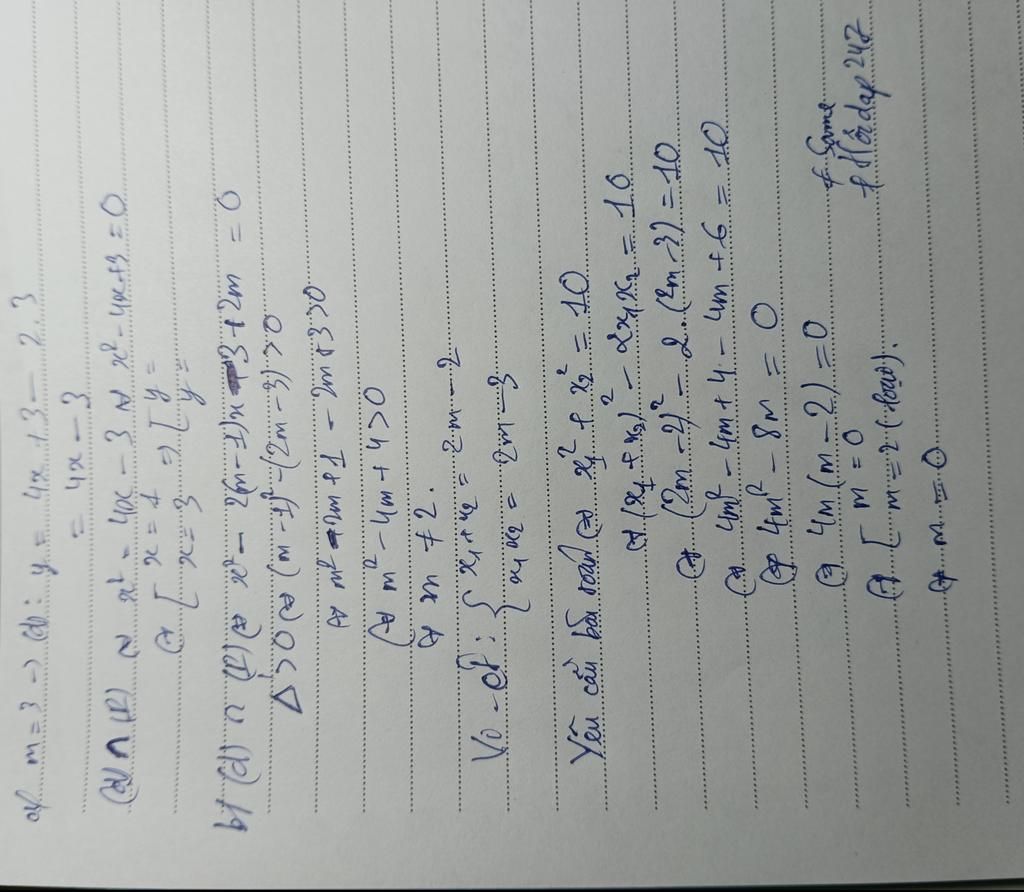 a) m = 3 → (d): y = 4x + 3 - 2.3
= 4x - 3
(d) ∩ (P) ~ x² = 4x - 3 ~ x² - 4x + 3 = 0
⇔ [ x = 1 ⇒ [ y =
[ x = 3 [ y =
b) (d) ∩ (P) ⇔ x² - 2(m - 1)x - 3 + 2m = 0
Δ' > 0 ⇔ (m - 1)² - (2m - 3) > 0
⇔ m² - 2m + 1 - 2m + 3 > 0
⇔ m² - 4m + 4 > 0
⇔ m ≠ 2.
Vi-ét: { x₁ + x₂ = 2m - 2
{ x₁x₂ = 2m - 3
Yêu cầu bài toán ⇔ x₁² + x₂² = 10
⇔ (x₁ + x₂)² - 2x₁x₂ = 10
⇔ (2m - 2)² - 2.(2m - 3) = 10
⇔ 4m² - 4m + 4 - 4m + 6 = 10
⇔ 4m² - 8m = 0
⇔ 4m(m - 2) = 0
⇔ [ m = 0
[ m = 2 (loại).
⇔ m = 0
# Hoidap247